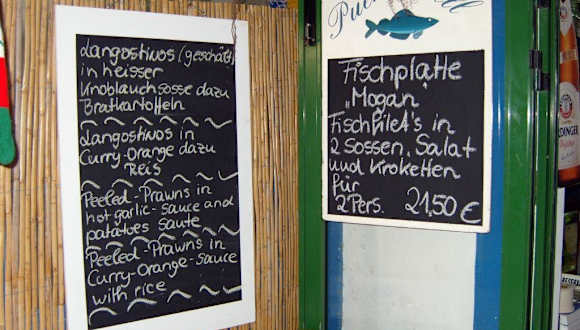 Langostinos (geschält)
in heisser
Knoblauchsosse dazu
Bratkartoffeln
Langostinos in
Curry-Orange dazu
Reis
Peeled-Prawns in
hot garlic-sauce and
patatoes saute
Peeled-Prawns in
Curry-Orange-sauce
with rice
Fischplatte
"Mogan"
Fischfilet's in
2 Sossen, Salat
und Kroketten
für
2 Pers. 21,50 €